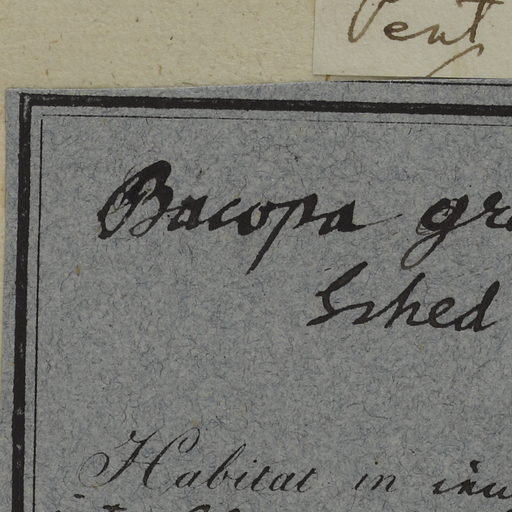 Pent
Bacopa gra
Sched
Habitat in